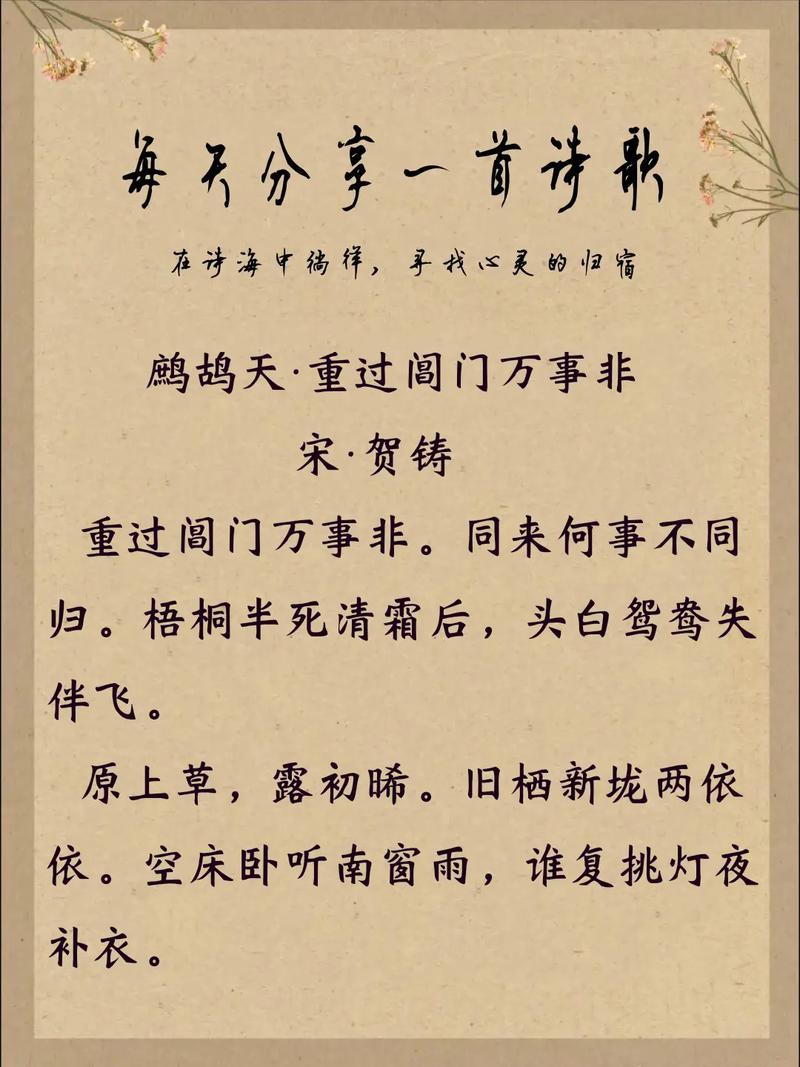 每天分享一首诗歌
在诗海中徜徉，寻找心灵的归宿
鹧鸪天·重过阊门万事非
宋·贺铸
重过阊门万事非。同来何事不同
归。梧桐半死清霜后，头白鸳鸯失
伴飞。
原上草，露初晞。旧栖新垅两依
依。空床卧听南窗雨，谁复挑灯夜
补衣。